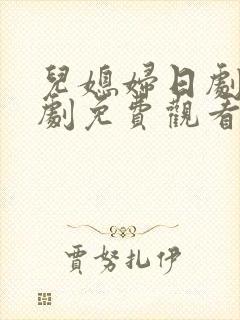 兒媳婦日劇
劇免費觀看
賈努扎伊